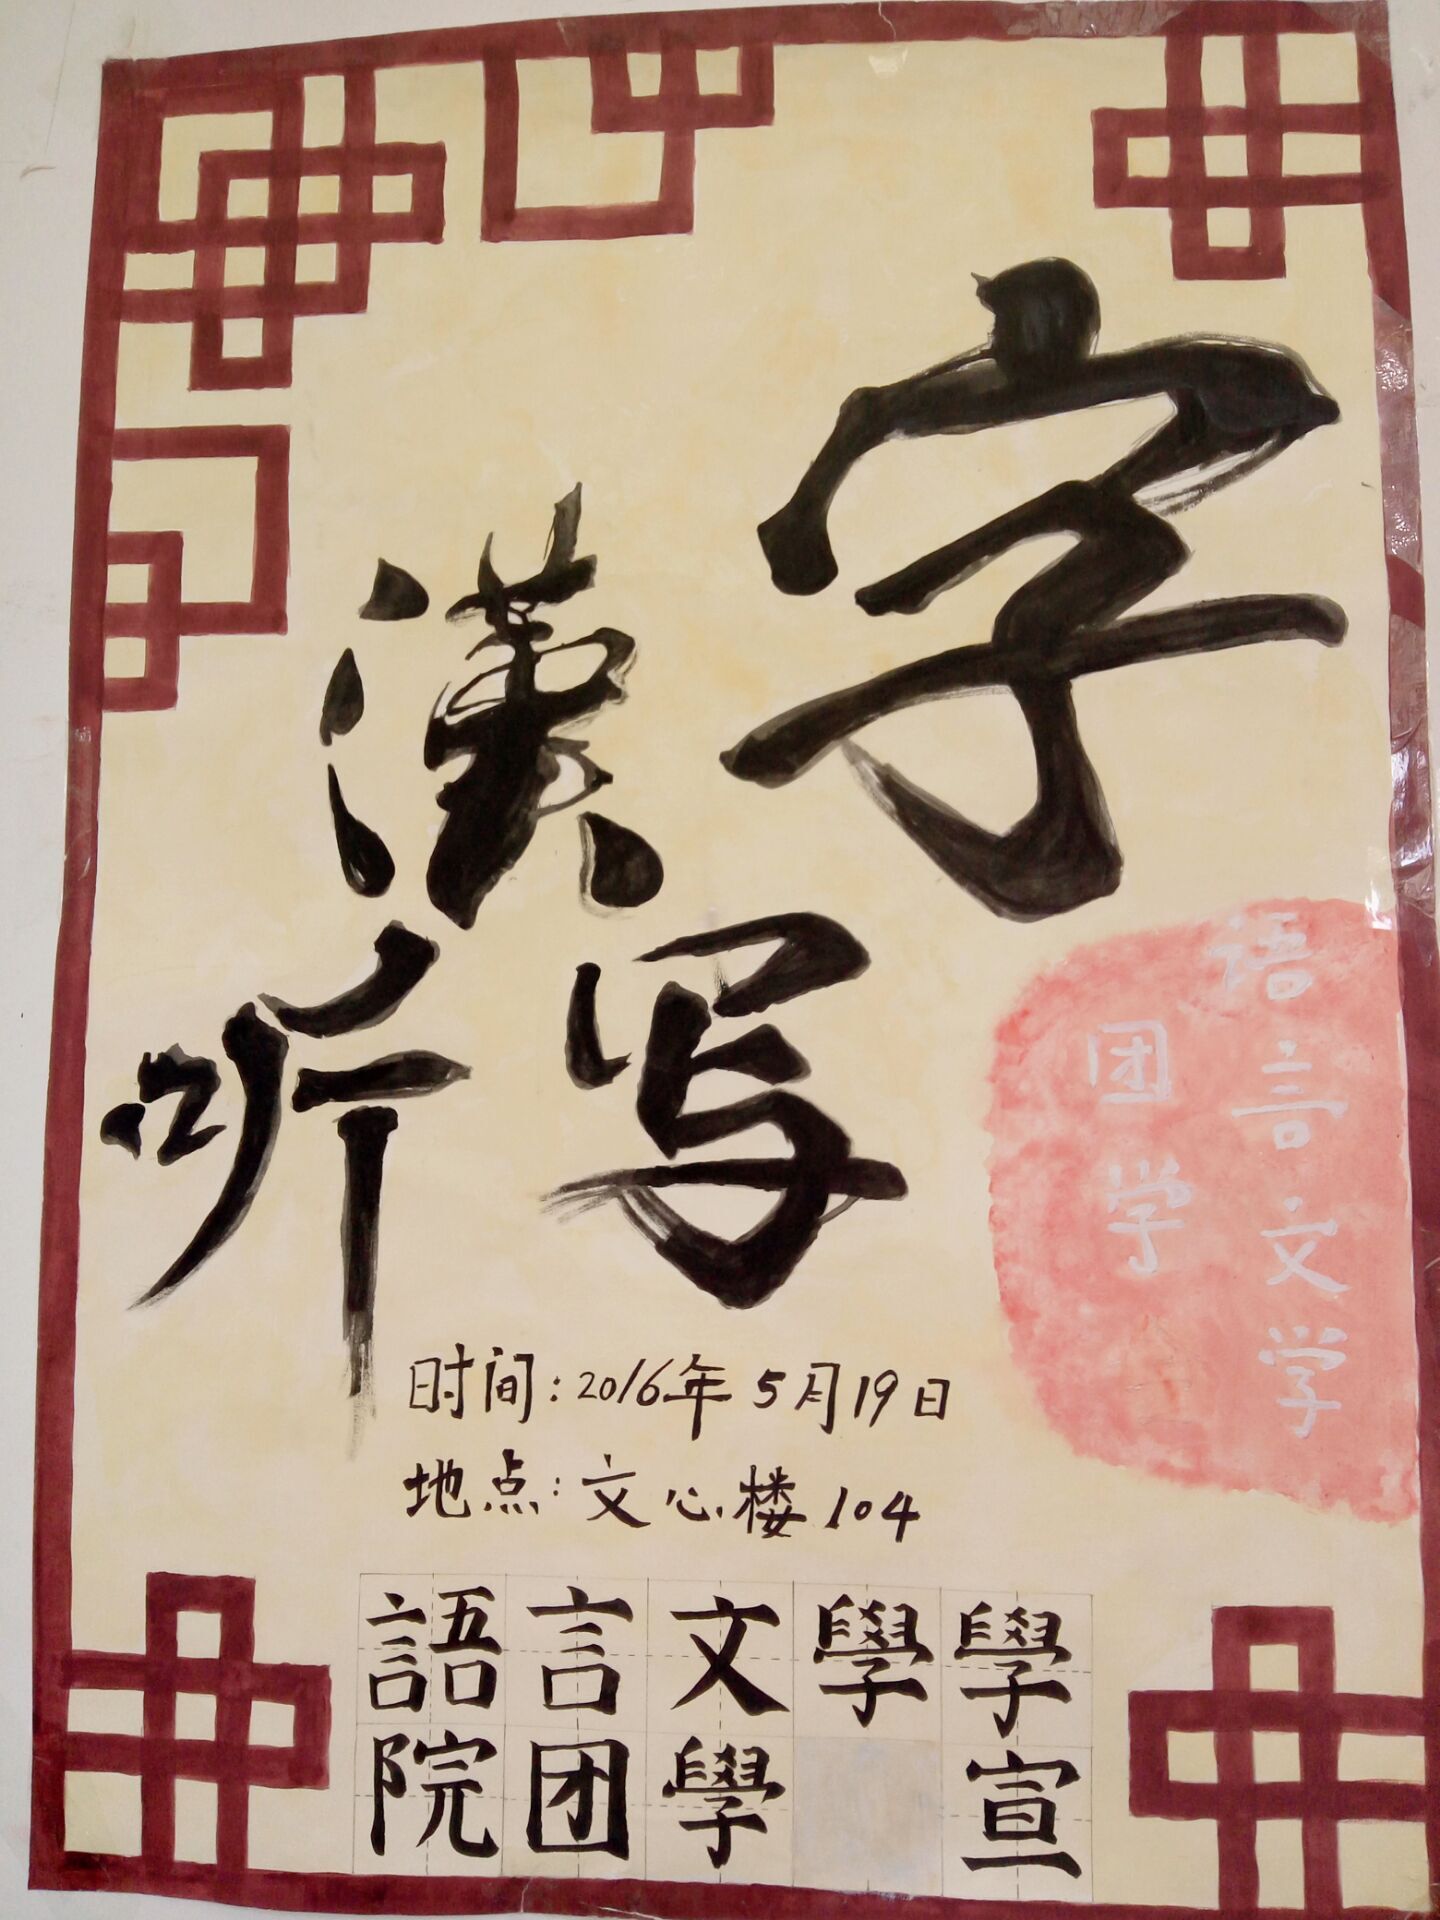 漢字
听写
语言文学
团学
时间:2016年5月19日
地点:文心楼104
語言文學學
院团學 宣